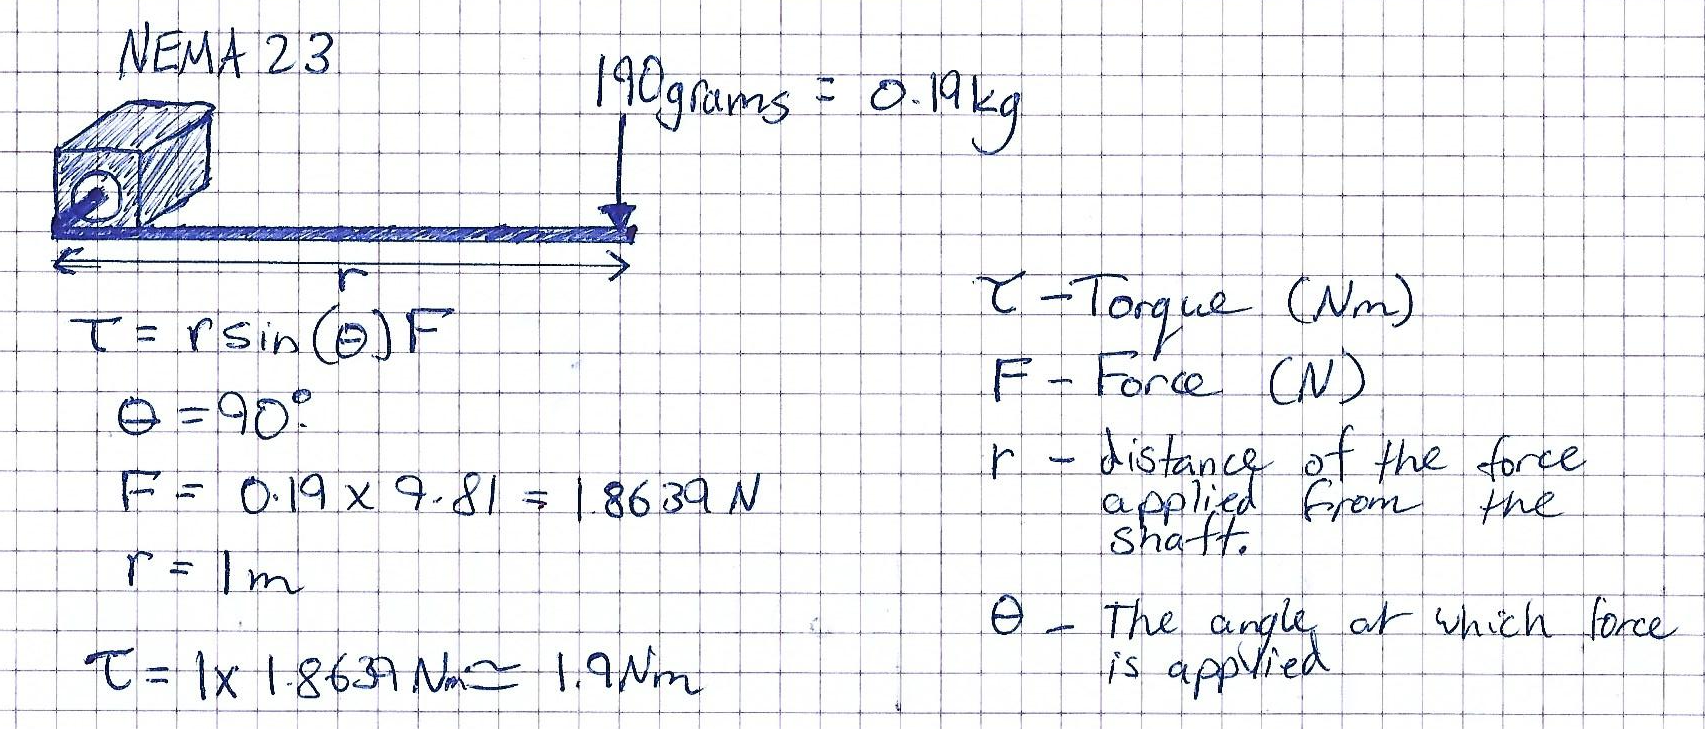 NEMA 23
190grams = 0.19kg
r
τ = r sin(θ)F
θ = 90°
F = 0.19 x 9.81 = 1.8639 N
r = 1m
τ = 1x 1.8639 Nm ≃ 1.9Nm
τ - Torque (Nm)
F - Force (N)
r - distance of the force
applied from the
shaft.
θ - The angle at which force
is applied